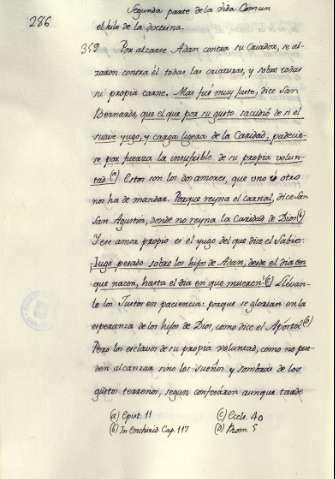 286
Segunda parte de la Vida Comun
el hilo de la doctrina.
359 Por alzarse Adan contra su Criador, se al-
zaron contra él todas las criaturas, y sobre todas
su propria carne. Mas fué muy justo, dice San
Bernardo, que el que por su gusto sacudió de sí el
suave yugo, y carga ligera de la Caridad, padecie-
se por fuerza la insufrible de su propia volun-
tad (a) Estos son los dos amores, que uno ú otro
nos ha de mandar. Porque reyna el carnal, dice San
San Agustin, donde no reyna la Caridad de Dios (b)
Y ese amor propio es el yugo del que dice el Sabio:
Yugo pesado sobre los hijos de Adan, desde el dia en
que nacen, hasta el dia en que mueren (c) Llevan-
lo los Justos con paciencia: porque se glorian en la
esperanza de los hijos de Dios, como dice el Apóstol (d)
Pero los esclavos de su propia voluntad, como no pue-
den alcanzar sino los sueños y sombras de los
gustos terrenos, segun confesaron aunque tarde
(a) Epist. 11 (c) Eccls. 40
(b) In Enchirid Cap. 117 (d) Rom. 5